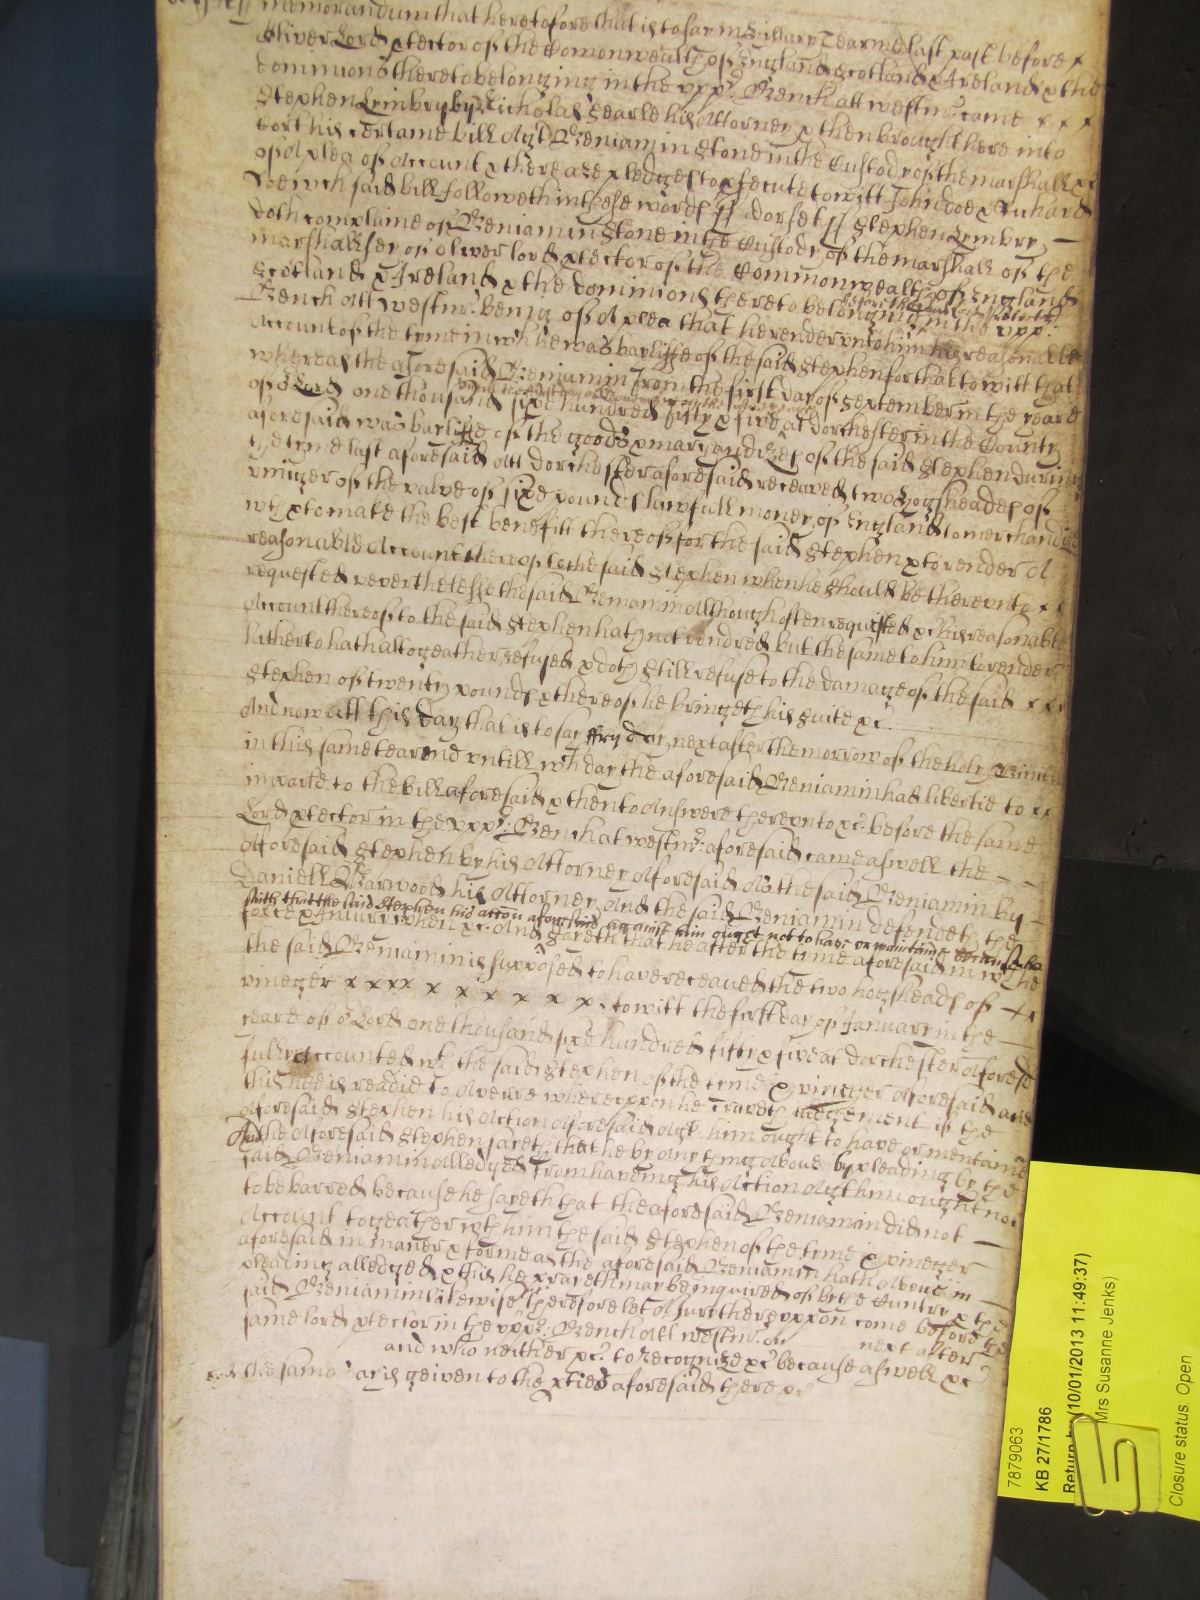 memorandum that heretofore that is to say in Hillary Tearme last past before x
Oliver Lord Ptector of the Comonwealth of England Scotland & Ireland & the
dominions thereto belonging in the vpp Bench att westmr came x x x
Stephen Lymbry by Nicholas Searle his Attorney & then brought here into
Cort his certaine bill agt Beniamin Stone in the Custody of the marshall &c
of A plea of Account & there are pledges to psecute towitt John doe & Richard
Roe wch said bill followeth in these words ss dorset ss Stephen Lymbry
doth complaine of Beniamin Stone in the Custody of the marshall of the
marshallsey of Oliver lord ptector of the Commonwealth of England
Scotland & Ireland & the dominions thereto belonging in the vpp
before the said lord Protector
Bench att westmr being of A plea that he render vnto him his reasonable
Account of the tyme in wch he was bayliffe of the said Stephen for that to witt that
whereas the aforesaid Beniamin from the first day of September in the yeare
of or Lord one thousand six hundred fifty & five at dorchester in the County
aforesaid was bayliffe of the goods & marchandizes of the said Stephen during
the tyme last aforesaid Att dorchester aforesaid receaved two hogsheades of
vinegar of the value of sixe pounds lawfull money of England to merchandize
wth & to make the best benefitt thereof for the said Stephen & to render A
reasonable Account thereof to the said Stephen when he should be therevnto x x
requested neverthelesse the said Beniamin Although often requested &c his reasonable
Account thereof to the said Stephen hath not rendred but the same to him to render
hitherto hath altogeather refused & doth still refuse to the damage of the said
Stephen of twenty pounds & thereof he bringeth his suite &c
And now att this day that is to say ffryday next after the morrow of the holy Trinitie
in this same tearme vntill wch day the aforesaid Beniamin had libertie to x x
imparle to the bill aforesaid & then to Answere therevnto &c before the same
Lord ptector in the vpp Bench at westmr aforesaid came aswell the
Aforesaid Stephen by his Attorney Aforesaid As the said Beniamin by
Daniell Barwood his Attorney And the said Beniamin defendeth the
saith that the said Stephen his accon aforesaid against him ought not to have or maintaine because he
force & Iniury when &c And sayeth that he after the time aforesaid in wch he
the said Beniamin is supposed to have receaved the two hogsheads of
vineger x x x x x x x x x x x towitt the first day of January in the
yeare of or Lord one thousand sixe hundred fifty & five at dorchester Aforesd
fully Accounted wth the said Stephen of the tyme & vineger Aforesaid and
this he is readie to Averre wherevppon he prayeth Iudgement if the
Aforesaid Stephen his Action Aforesaid agt him ought to have or mentaine
And the Aforesaid Stephen sayeth that he by Any thing Above by pleading by the
said Beniamin Alledged from haveing his Action agt him ought not
to be barred because he sayeth that the aforesaid Beniamin did not
Account togeather wth him the said Stephen of the tyme & vineger
aforesaid in maner & forme as the aforesaid Beniamin hath Above in
pleading alledged & this he prayeth may be inquired of by the Cuntry & the
said Beniamin likewise Therefore let A Jury therevppon come before the
same lord ptector in the vpp Bench Att westmr on next after
and who neither &c to Recognize &c because aswell &c
the same day is geiven to the pties aforesaid there &c
7879063
KB 27/1786
Return by (10/01/2013 11:49:37)
Mrs Susanne Jenks)
Closure status: Open